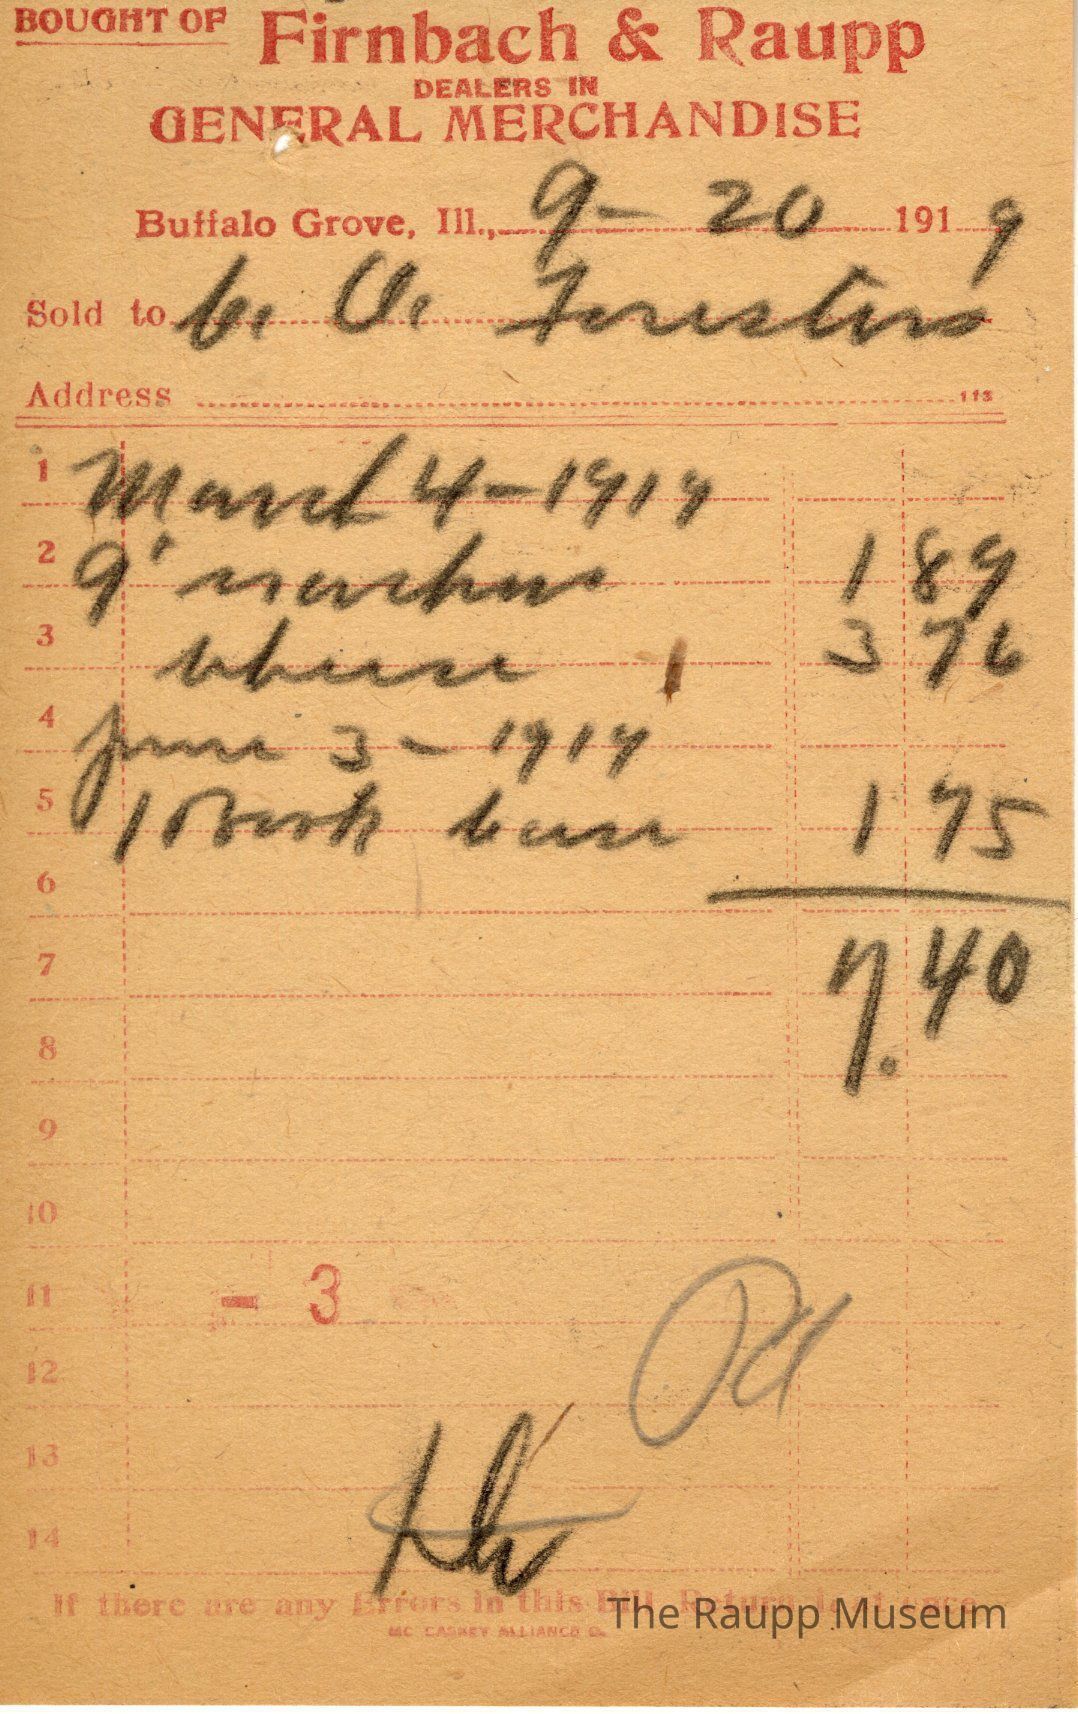 BOUGHT OF Firnbach & Raupp
DEALERS IN
GENERAL MERCHANDISE
Buffalo Grove, Ill., 9- 20 1919
Sold to C. O. Foresters
Address 113
1 March 4-1919
2 9 1 89
3 cheese 3 76
4 June 3-1919
5 1 Book case 1 75
6
7 7.40
8
9
10
11 - 3
12 Pd
13
14
If there are any Errors in this Bill, Return at once
MC CASKEY ALLIANCE O.
The Raupp Museum